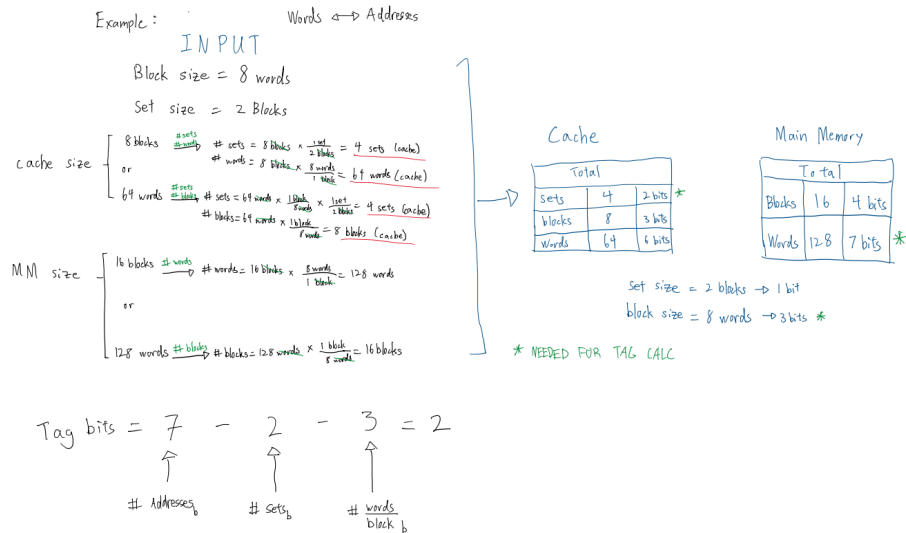 Example:
Words ⟷ Addresses
INPUT
Block size = 8 words
Set size = 2 Blocks
cache size
8 blocks
# sets
# words
# sets = 8 blocks × 1 set / 2 blocks = 4 sets (cache)
# words = 8 blocks × 8 words / 1 block = 64 words (cache)
or
64 words
# sets
# blocks
# sets = 64 words × 1 block / 8 words × 1 set / 2 blocks = 4 sets (cache)
# blocks = 64 words × 1 block / 8 words = 8 blocks (cache)
MM size
16 blocks
# words
# words = 16 blocks × 8 words / 1 block = 128 words
or
128 words
# blocks
# blocks = 128 words × 1 block / 8 words = 16 blocks
Cache
Total
sets 4 2 bits *
blocks 8 3 bits
words 64 6 bits
Main Memory
Total
Blocks 16 4 bits
Words 128 7 bits *
set size = 2 blocks → 1 bit
block size = 8 words → 3 bits *
* NEEDED FOR TAG CALC
Tag bits = 7 - 2 - 3 = 2
# Addresses b
# sets b
# words / block b